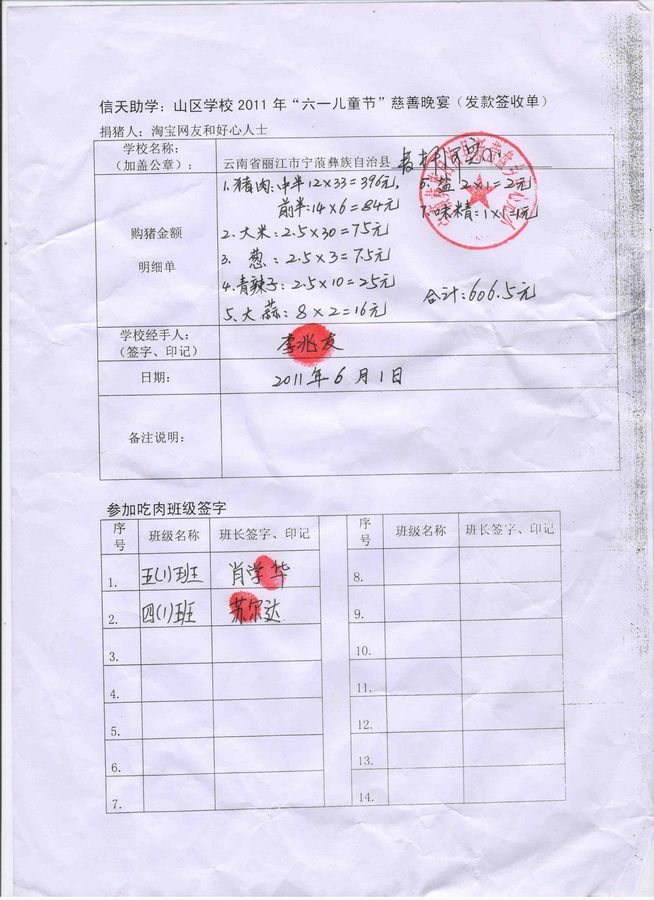 信天助学：山区学校2011年“六一儿童节”慈善晚宴（发款签收单）
捐猪人：淘宝网友和好心人士
学校名称：
（加盖公章）：
云南省丽江市宁蒗彝族自治县
购猪金额
明细单
1.猪肉：中半12×33=396元，
前半：14×6=84元
2.大米：2.5×30=75元
3.葱：2.5×3=7.5元
4.青辣子：2.5×10=25元
5.大蒜：8×2=16元
6.盐2×1=2元
7.味精：1×1=1元
合计：606.5元
学校经手人：
（签字、印记）
李兆友
日期：
2011年6月1日
备注说明：
参加吃肉班级签字
序号 班级名称 班长签字、印记 序号 班级名称 班长签字、印记
1. 五(1)班 肖学华 8.
2. 四(1)班 苏尔达 9.
3. 10.
4. 11.
5. 12.
6. 13.
7. 14.